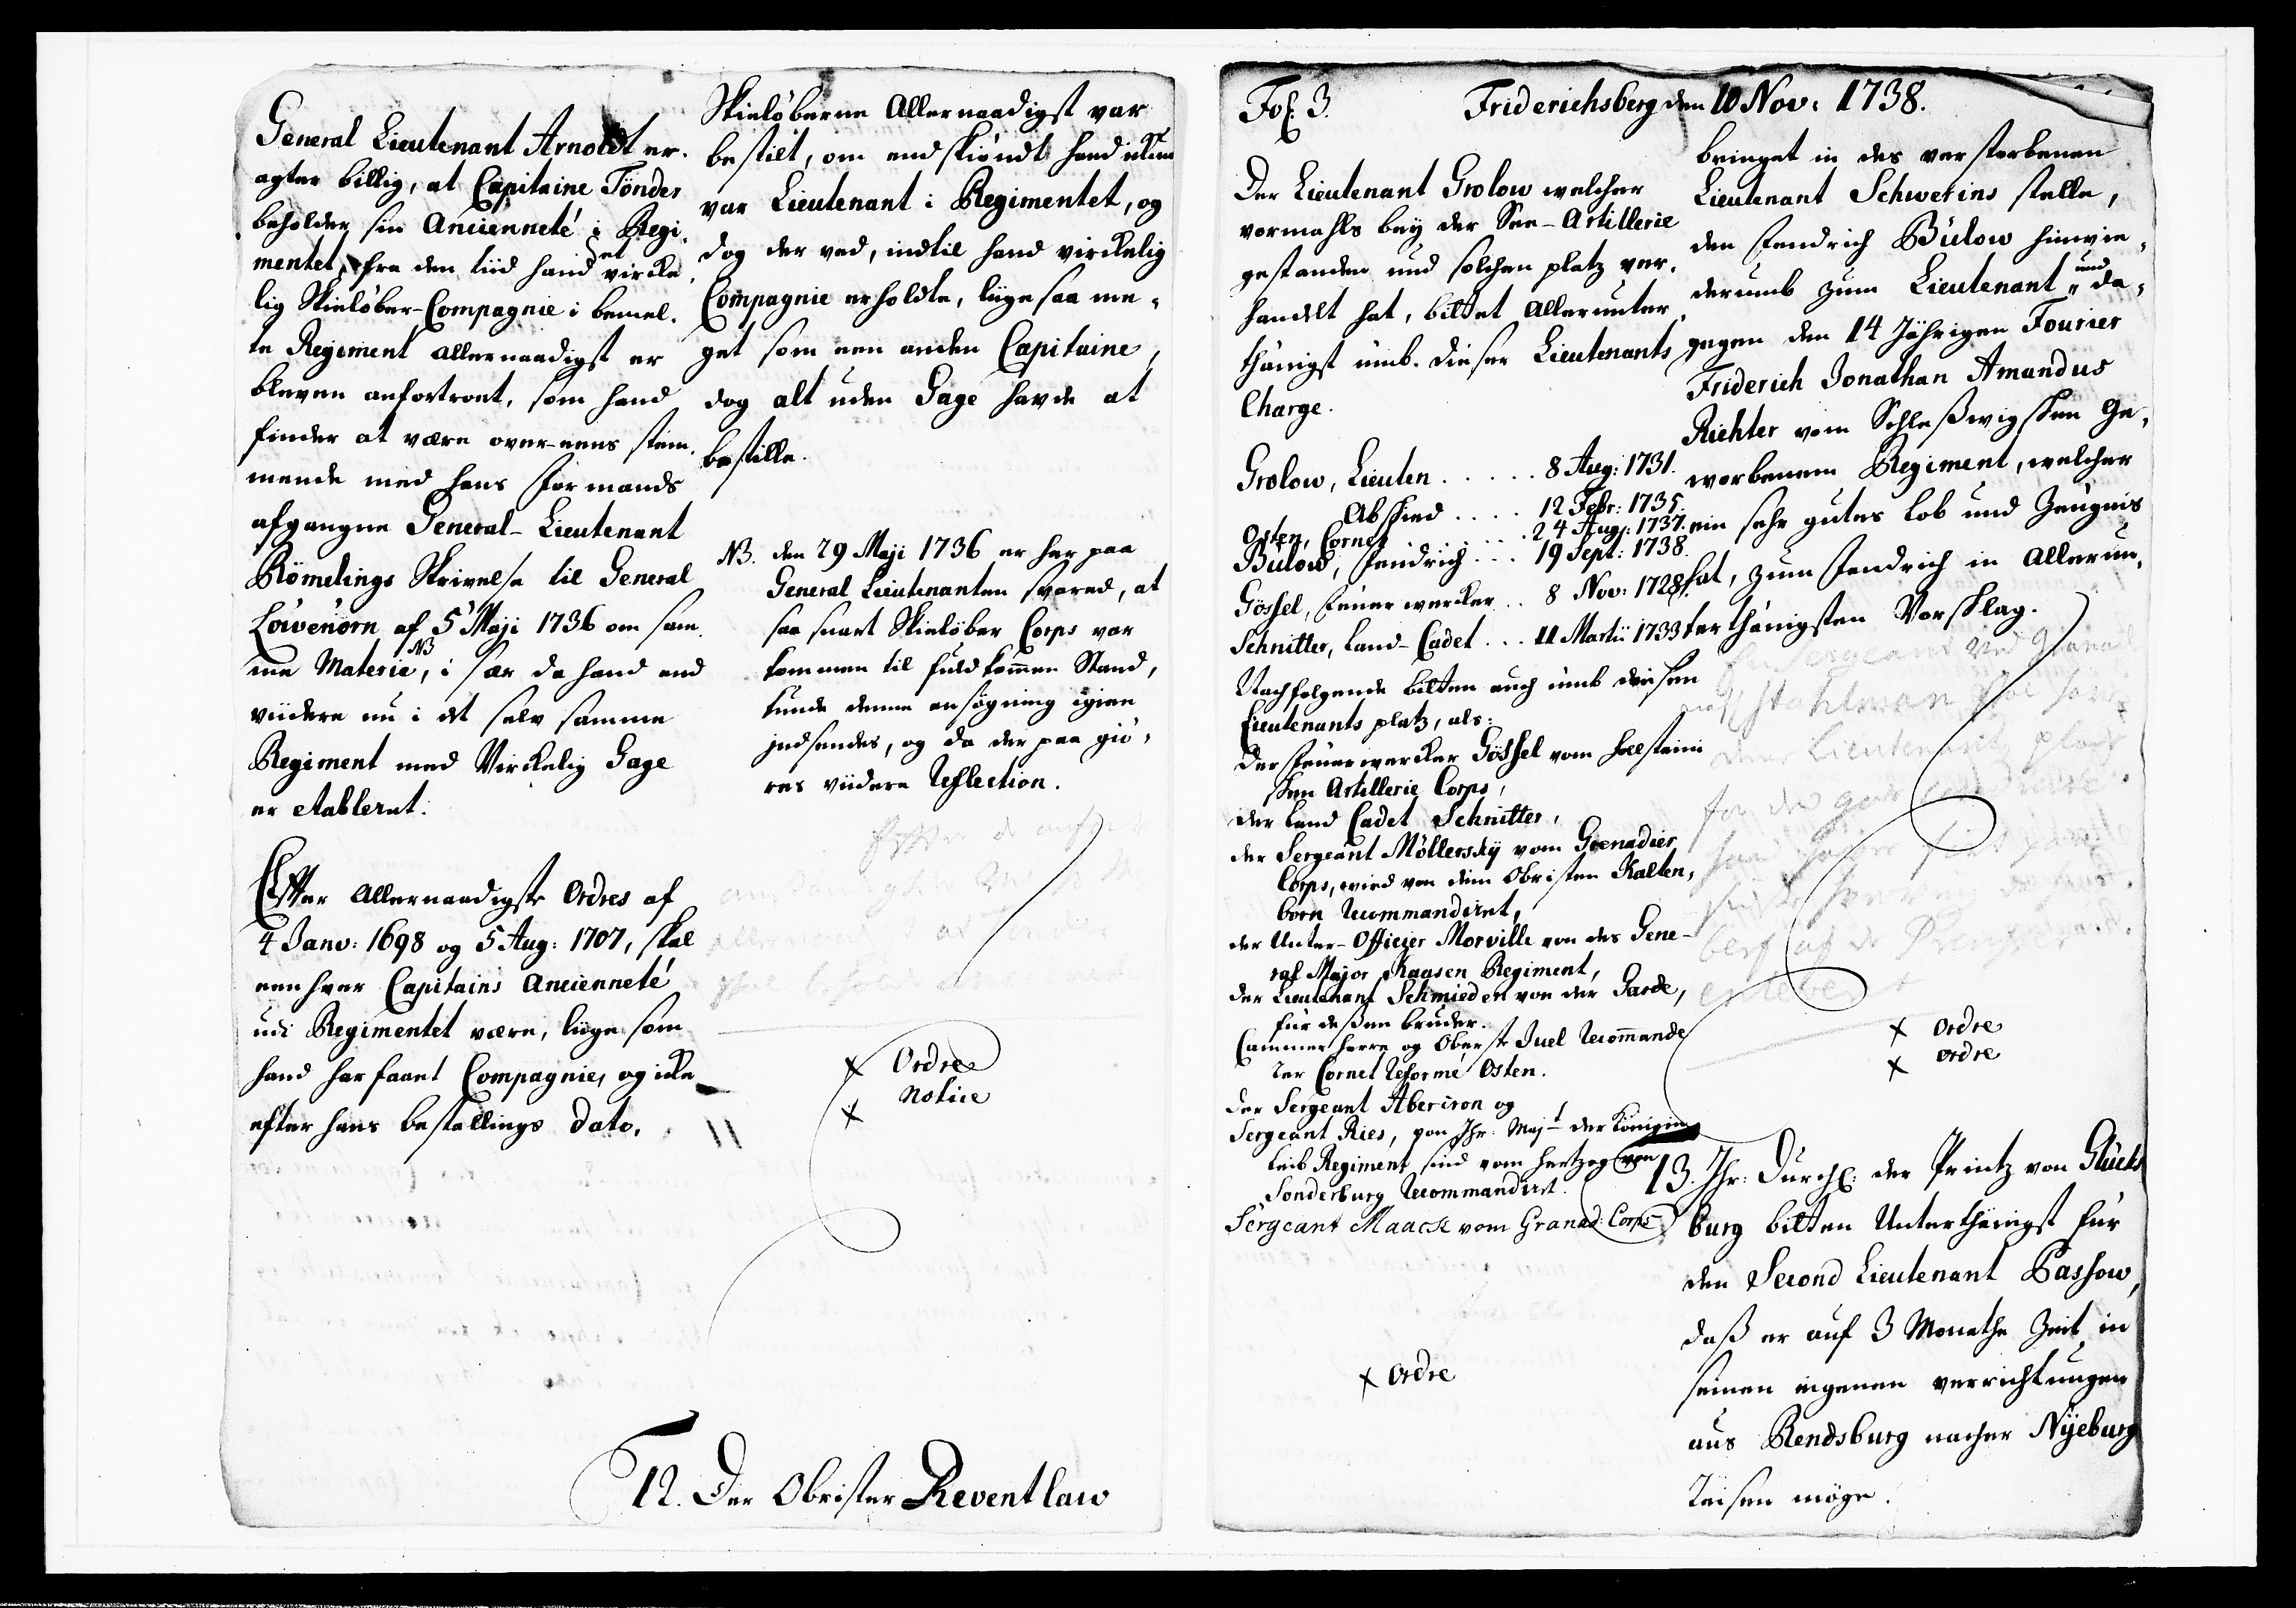 General Lieutenant Arnoldt er-
agter billig, at Capitaine Tönder
beholder sin Anciennetè i Regi-
mentet, fra den tiid hand et virke-
lig Skielöber-Compagnie i bemel-
te Regiment allernaadigst er
bleven anfortroet, som hand
finder at være over-eens stem-
mende med hans formands
afgangne General-Lieutenant
Römelings Skrivelse til General
Löwenörn af 5 Maji 1736 om sam-
me Materie, NB i sær da hand end
viidere nu i det selv samme
Regiment med Virkelig Gage
er etableret.
Efter allernaadigste Ordres af
4 Janv: 1698 og 5 Aug: 1707, skal
een hver Capitains Anciennetè
udi Regimentet være, liige som
hand har faaet Compagnie, og icke
efter hans bestallings Dato.
Skielöberne Allernaadigst var
bestilt, om endskiöndt hand ickun
var Lieutenant i Regimentet, og
dog der ved, indtil hand virkelig
Compagnie erholdte, liige saa me-
get som een anden Capitaine,
dog alt uden Gage havde at
bestille.
NB. den 29 Maji 1736 er her paa
General Lieutenanten svared, at
saa snart Skielöber Corps var
kommen til fuldkommen Stand,
kunde denne ansögning igien
indsendes, og da der paa giö-
res viidere Reflection.
x Ordre
x Notice
12. Der Obrister Reventlaw
Fol: 3. Friderichsberg den 10 Nov: 1738.
Der Lieutenant Grolow welcher
vormahls bey der See-Artillerie
gestanden und solchen platz ver-
handelt hat, bittet Allerunter-
thänigst umb dieser Lieutenants
Charge.
Grolow, Lieuten ..... 8 Aug: 1731.
Abschied .... 12 Febr: 1735.
Osten, Cornet ..... 24 Aug: 1737.
Bülow, Fendrich ... 19 Sept: 1738.
Gössel, Feuerwercker .. 8 Nov: 1728.
Schnitter, Land-Cadet ... 11 Martii 1733
Nachfolgende bitten auch umb diesen
Lieutenants platz, als:
Der Feuerwercker Gössel vom Holsteini
schen Artillerie Corps,
der Land Cadet Schnitter,
der Sergeant Möllersky vom Grenadier
Corps, wird von dem Obristen Kalten-
born recommandiret,
der Unter-Officier Morville von des Gene-
ral Major Kaasen Regiment,
der Lieutenant Schmieden von der Garde,
für deßen bruder.
Cammerherre og Oberste Juel recommande
rer Cornet Reformé Osten.
der Sergeant Aberiron og
Sergeant Ries, von Ihr: Majt der Königin
Leib Regiment sind vom Hertzog von
Sonderburg recommandiret.
Sergeant Maack vom Granad: Corps
x Ordre
bringet in des verstorbenen
Lieutenant Schwerins stelle,
den Fendrich Bülow hinwie-
derumb zum Lieutenant, und da-
gegen den 14 Jährigen Fourier
Friderich Jonathan Amandus
Richter vom Schleßwigschen Ge-
worbenem Regiment, welcher
ein sehr gutes lob und Zeugnis
hat, zum Fendrich in Allerun-
terthänigsten Vorschlag.
Stahlman
Lieutenant
x Ordre
x Ordre
13. Ihr: Durchl: der Printz von Glücks
burg bitten Unterthänigst für
den Second Lieutenant Passow,
daß er auf 3 Monathe Zeit in
seinen eigenen verrichtungen
aus Rendsburg nacher Nÿeburg
reisen möge.